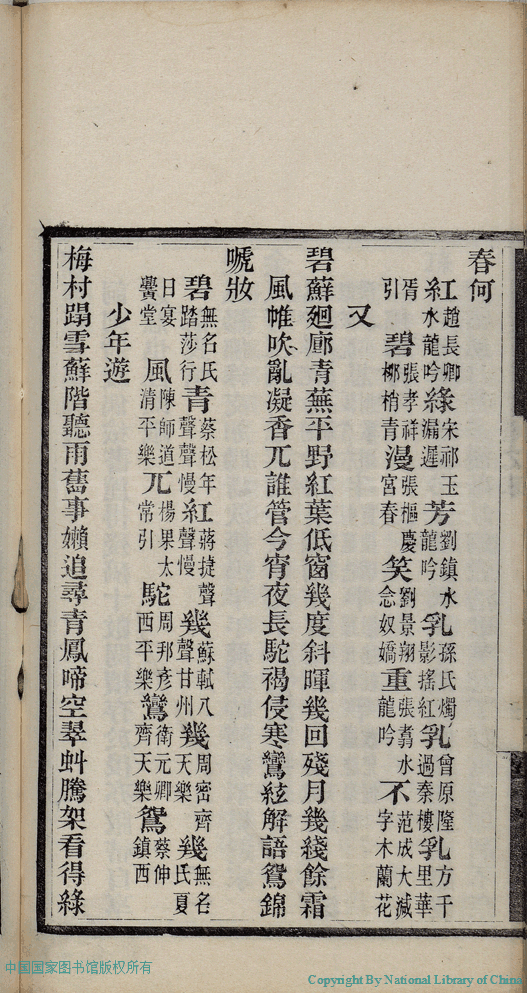 春何
紅趙長卿水龍吟綠宋祁玉漏遲芳劉鎮水龍吟乳孫氏燭影搖紅乳曾原隆過秦樓乳方千里華
胥引碧張孝祥柳梢青漫張樞慶宮春笑劉景翔念奴嬌重張翥水龍吟不范成大減字木蘭花
又
碧蘚廻廊青蕪平野紅葉低窗幾度斜暉幾回殘月幾綫餘霜
風帷吹亂凝香兀誰管今宵夜長駝褐侵寒鸞絃解語鴛錦
唬妝
碧無名氏踏莎行青蔡松年聲聲慢紅蔣捷聲聲慢幾蘇軾八聲甘州幾周密齊天樂幾無名氏夏
日宴黌堂風陳師道清平樂兀楊果太常引駝周邦彥西平樂鸞衛元卿齊天樂鴛蔡伸鎮西
少年遊
梅村蹋雪蘚階聽雨舊事嬾追尋青鳳啼空翠虯騰架看得綠
中国国家图书馆版权所有
Copyright By National Library of China